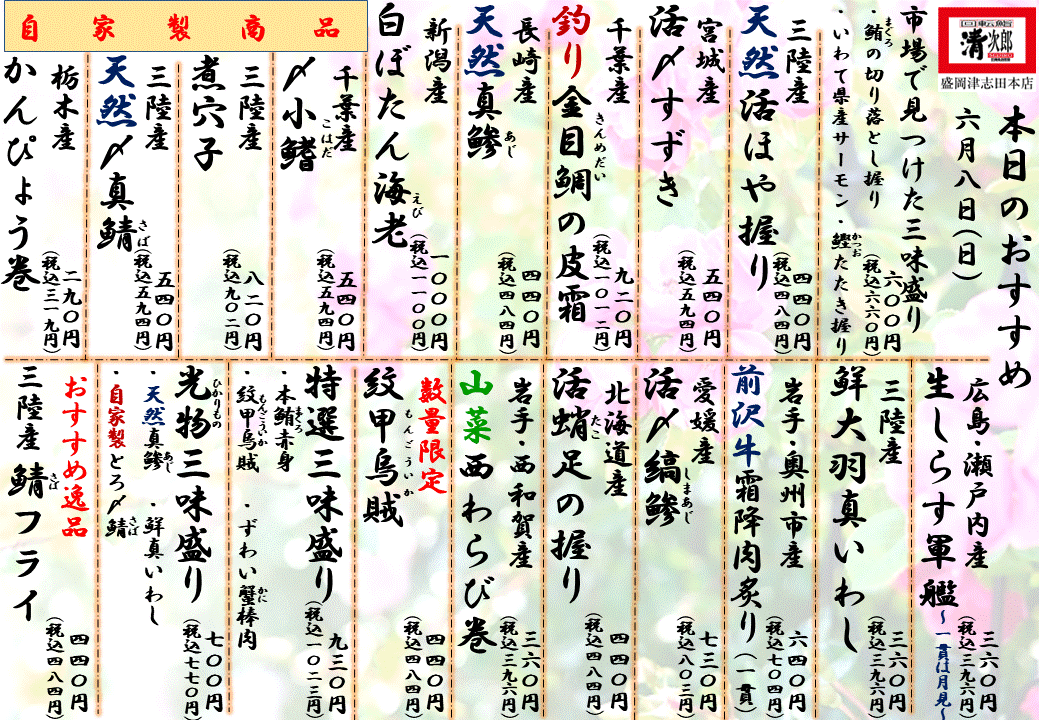 回転鮨
清次郎
盛岡津志田本店
本日のおすすめ
六月八日（日）
市場で見つけた三味盛り
六〇〇円
（税込六六〇円）
・鮪の切り落とし握り
まぐろ
・いわて県産サーモン・鰹たたき握り
かつお
三陸産
天然活ほや握り
四四〇円
（税込四八四円）
宮城産
活〆すずき
五四〇円
（税込五九四円）
千葉産
釣り金目鯛の皮霜
きんめだい
九二〇円
（税込一〇一二円）
長崎産
天然真鯵
あじ
四四〇円
（税込四八四円）
新潟産
白ぼたん海老
えび
一〇〇〇円
（税込一一〇〇円）
自家製商品
千葉産
〆小鰭
こはだ
五四〇円
（税込五九四円）
三陸産
煮穴子
八二〇円
（税込九〇二円）
三陸産
天然〆真鯖
さば
五四〇円
（税込五九四円）
栃木産
かんぴょう巻
二九〇円
（税込三一九円）
広島・瀬戸内産
生しらす軍艦
～一貫は月見～
三六〇円
（税込三九六円）
三陸産
鮮大羽真いわし
三六〇円
（税込三九六円）
岩手・奥州市産
前沢牛霜降肉炙り（一貫）
六四〇円
（税込七〇四円）
愛媛産
活〆縞鯵
しまあじ
七三〇円
（税込八〇三円）
北海道産
活蛸足の握り
たこ
四四〇円
（税込四八四円）
岩手・西和賀産
山菜西わらび巻
三六〇円
（税込三九六円）
数量限定
紋甲烏賊
もんごういか
四四〇円
（税込四八四円）
特選三味盛り
九三〇円
（税込一〇二三円）
・本鮪赤身
まぐろ
・紋甲烏賊
もんごういか
・ずわい蟹棒肉
かに
光物三味盛り
ひかりもの
七〇〇円
（税込七七〇円）
・天然真鯵
あじ
・鮮真いわし
・自家製とろ〆鯖
さば
おすすめ逸品
三陸産 鯖フライ
さば
四四〇円
（税込四八四円）